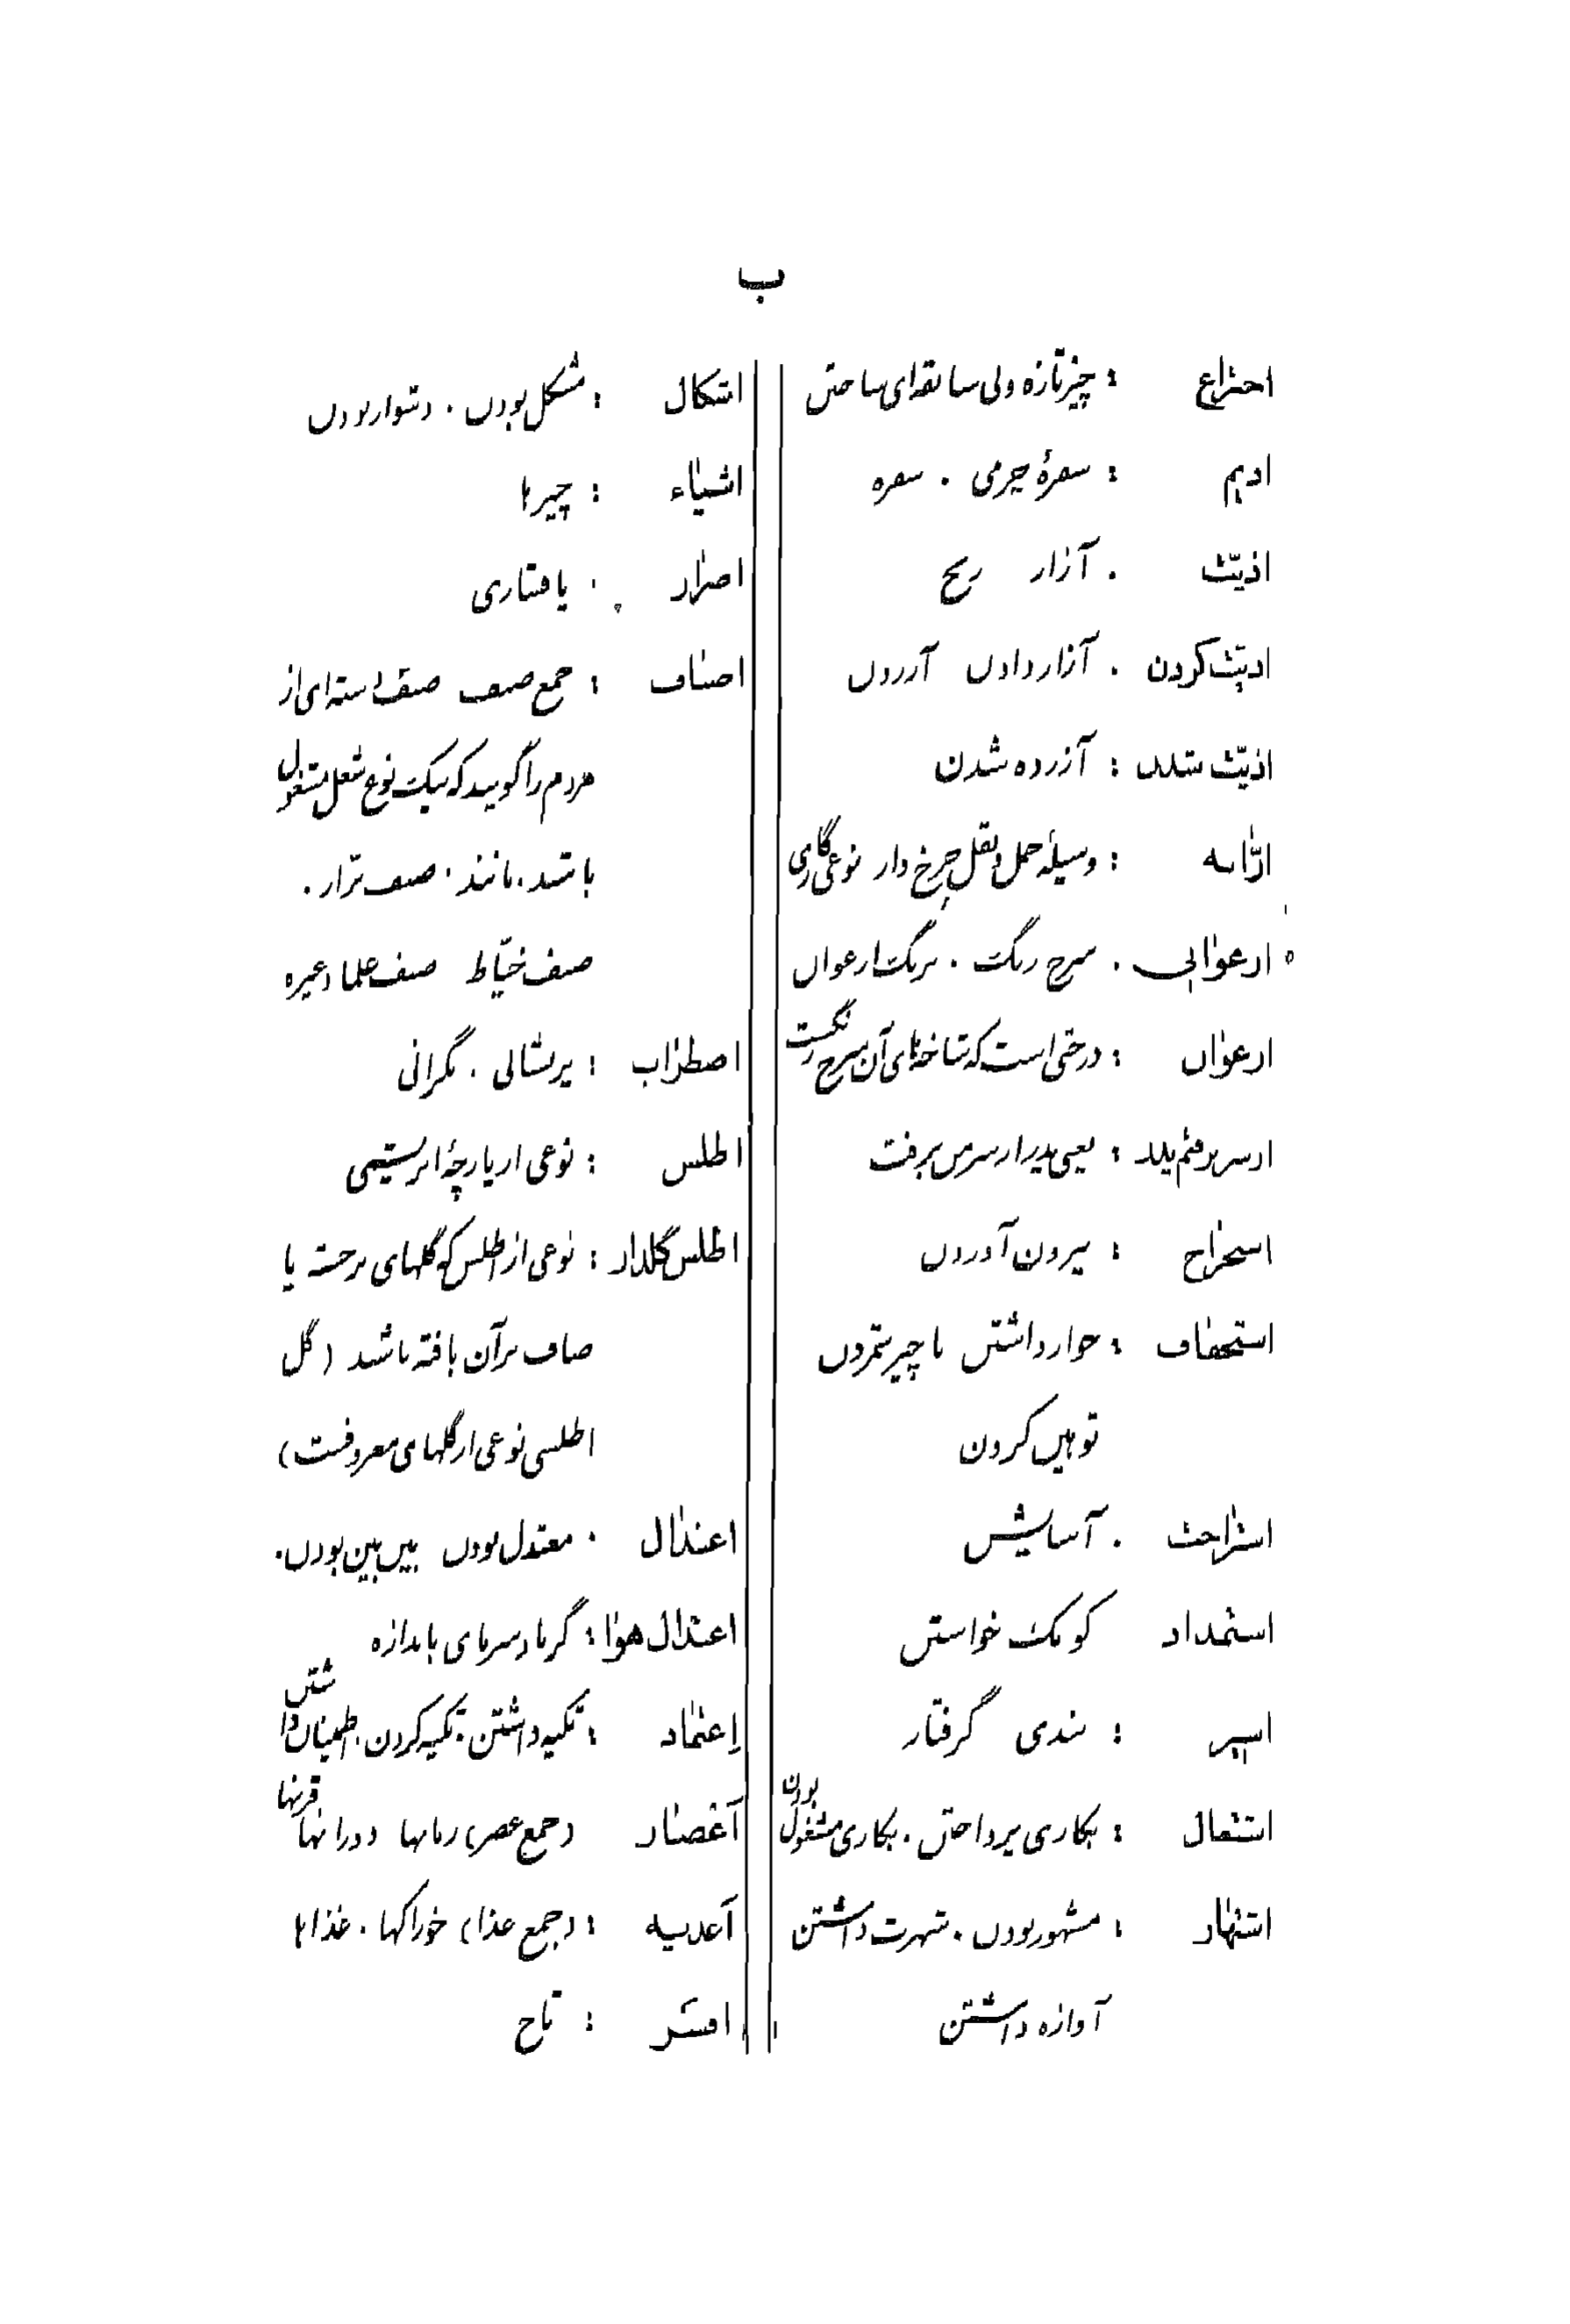 ب
اختراع : چیز تازه ولی سابقه‌ای ساختن
ادیم : سفرهٔ چرمی . سفره
اذیّت . آزار رنج
اذیّت کردن . آزار دادن آزردن
اذیّت شدن : آزرده شدن
ارّابه : وسیلهٔ حمل و نقل چرخ دار نوعی گاری
ارغوانی . سرخ رنگ . برنگ ارغوان
ارغوان : درختی است که شاخه‌های آن سرخ رنگست
از سر برفتم پدر : یعنی پدر از سر من برفت
استخراج : بیرون آوردن
استخفاف : خوار داشتن ناچیز شمردن
توهین کردن
استراحت . آسایش
استمداد کومک خواستن
اسیر : بندی گرفتار
اشتغال : بکاری پرداختن . بکاری مشغول بودن
اشتهار : مشهور بودن . شهرت داشتن
آوازه داشتن
اشکال : مشکل بودن . دشوار بودن
اشیاء : چیزها
اصرار : پافشاری
اصناف : جمع صنف صنف دسته‌ای از
مردم را گویند که بیک نوع شغل مشغول
باشند . مانند . صنف بزّاز .
صنف خیّاط صنف علما و غیره
اضطراب : پریشانی . نگرانی
اطلس : نوعی از پارچهٔ ابریشمی
اطلس گلدار : نوعی از اطلس که گلهای برجسته یا
صاف بر آن بافته باشند (گل
اطلسی نوعی از گلهای معروفست)
اعتدال . معتدل بودن بین بین بودن.
اعتدال هوا : گرما و سرمای باندازه
اِعتماد : تکیه داشتن . تکیه کردن . اطمینان داشتن
اَعصار (جمع عصر) زمانها و دورانها قرنها
اَغذیه : (جمع غذا) خوراکها . غذاها
افسَر : تاج